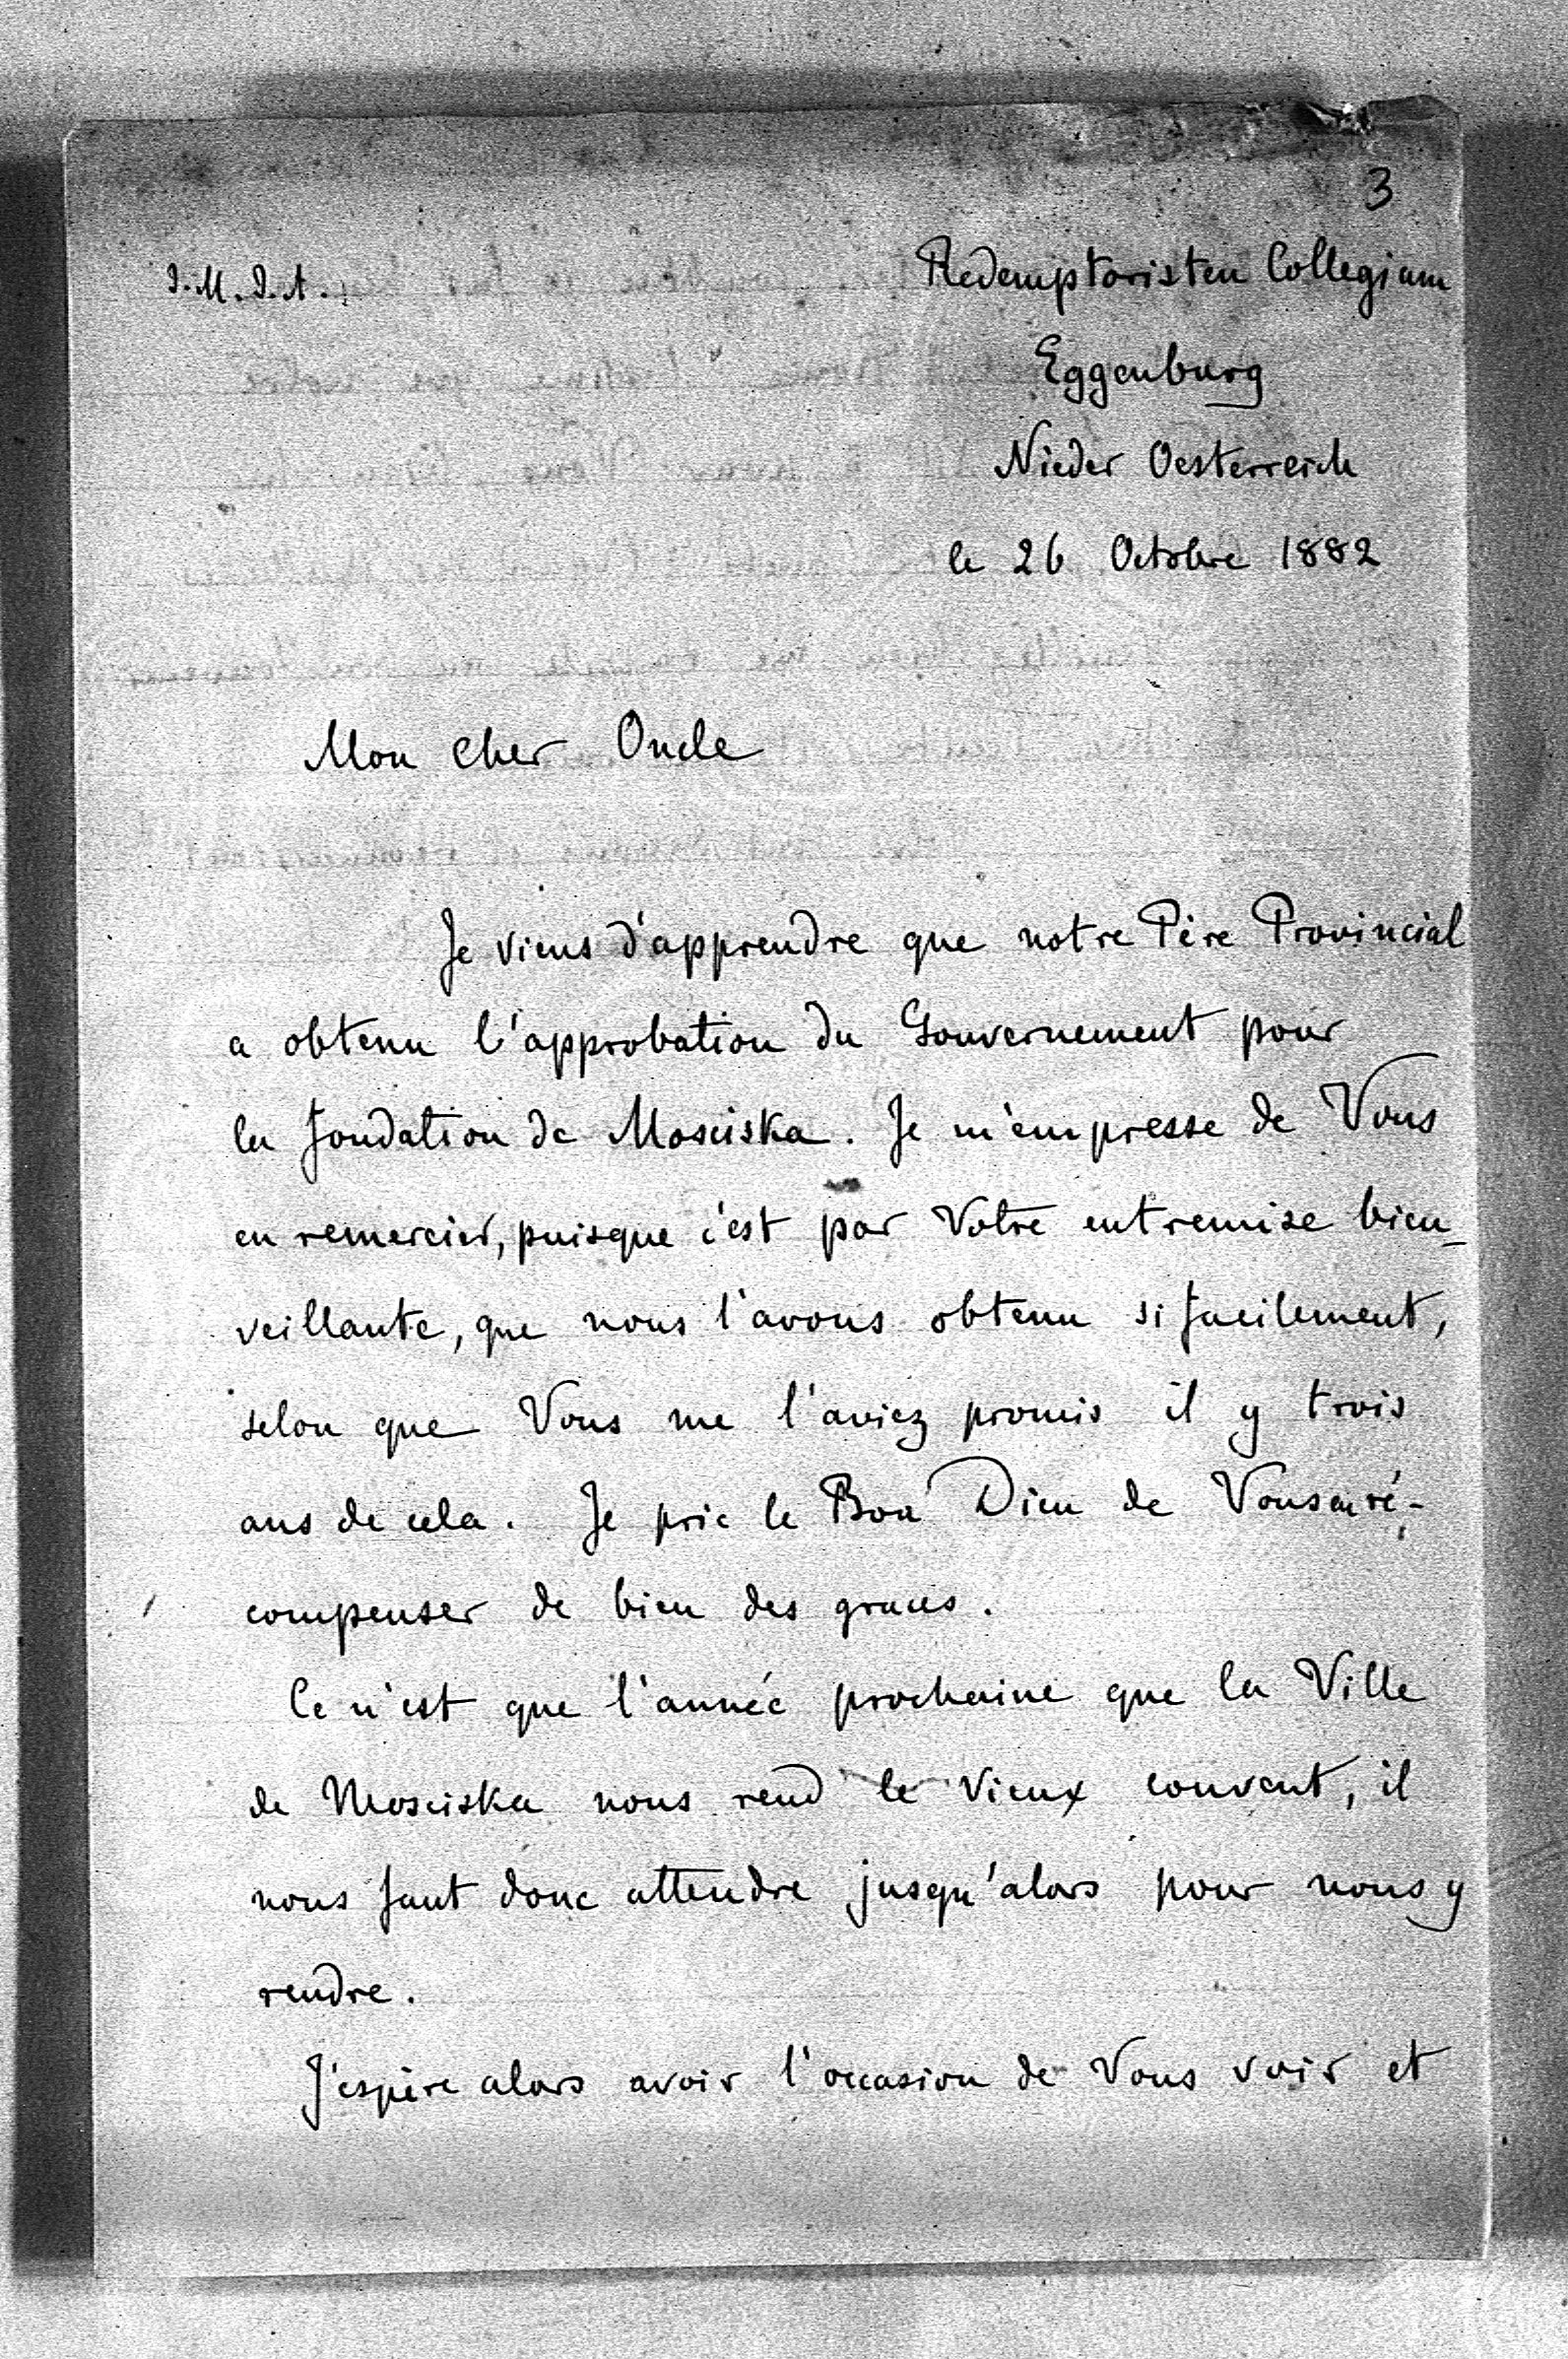 3
J.M.J.A.
Redemptoristen Collegium
Eggenburg
Nieder Oesterreich
le 26 Octobre 1882
Mon cher Oncle
Je viens d'apprendre que notre Père Provincial
a obtenu l'approbation du Gouvernement pour
la fondation de Mosciska. Je m'empresse de Vous
en remercier, puisque c'est par Votre entremise bien-
veillante, que nous l'avons obtenu si facilement,
selon que Vous me l'aviez promis il y trois
ans de cela. Je prie le Bon Dieu de Vous en ré-
compenser de bien des graces.
Ce n'est que l'année prochaine que la Ville
de Mosciska nous rend le vieux couvent, il
nous faut donc attendre jusqu'alors pour nous y
rendre.
J'espère alors avoir l'occasion de Vous voir et